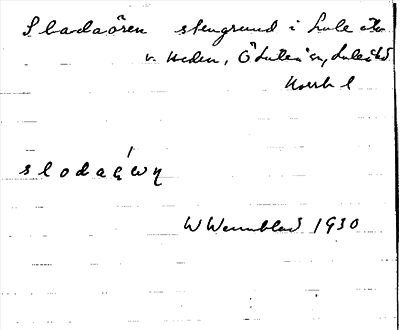 Sladaören stengrund i Lule älv
v. Heden, Ö Luleå sn, Luleå td
Norrb l
slodaęwη
W Wennblad 1930